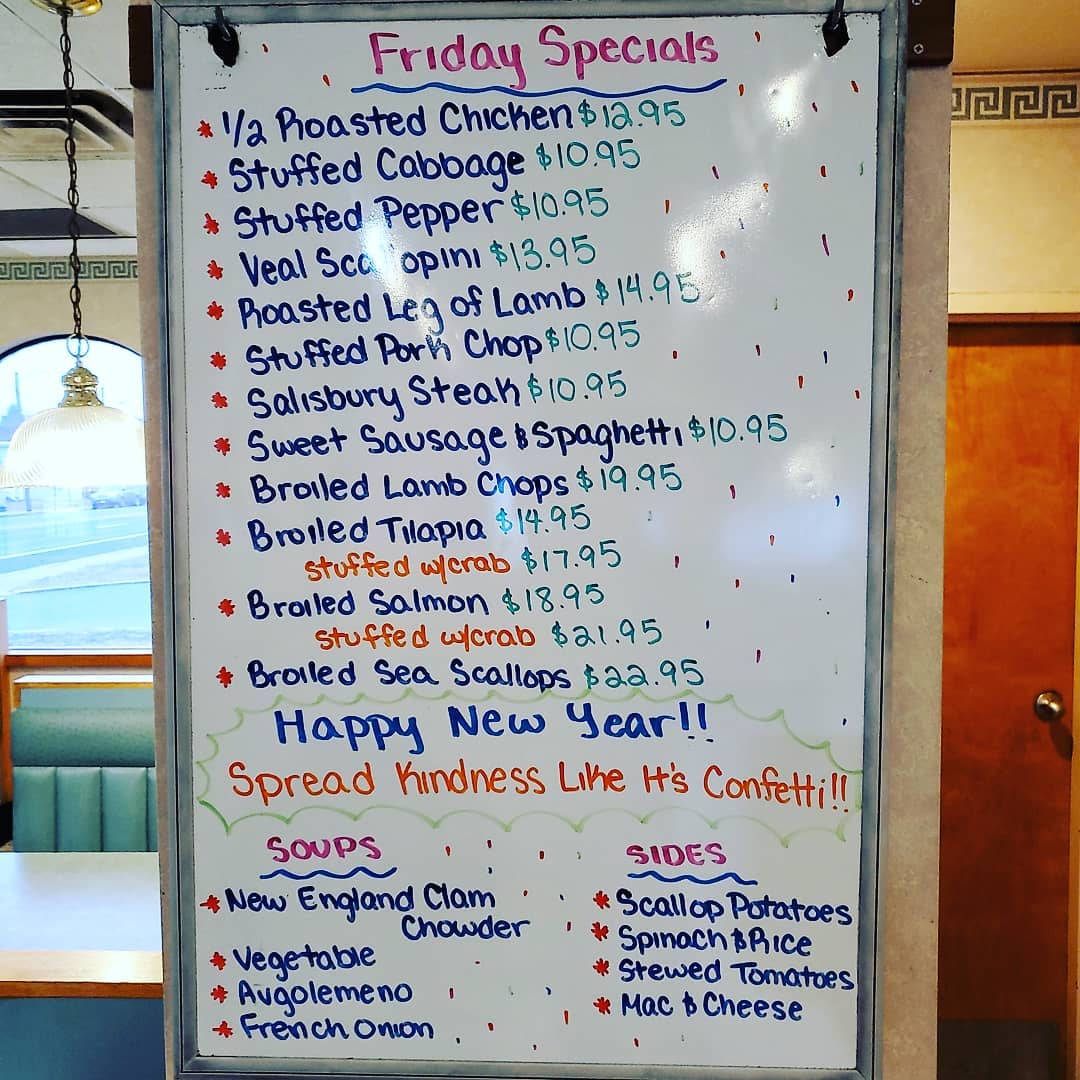 Friday Specials
* 1/2 Roasted Chicken $12.95
* Stuffed Cabbage $10.95
* Stuffed Pepper $10.95
* Veal Scallopini $13.95
* Roasted Leg of Lamb $14.95
* Stuffed Pork Chop $10.95
* Salisbury Steak $10.95
* Sweet Sausage & Spaghetti $10.95
* Broiled Lamb Chops $19.95
* Broiled Tilapia $14.95
stuffed w/crab $17.95
* Broiled Salmon $18.95
stuffed w/crab $21.95
* Broiled Sea Scallops $22.95
Happy New Year!!
Spread Kindness Like It's Confetti!!
SOUPS
* New England Clam
Chowder
* Vegetable
* Avgolemeno
* French Onion
SIDES
* Scallop Potatoes
* Spinach & Rice
* Stewed Tomatoes
* Mac & Cheese